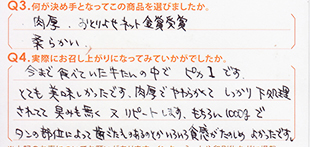 Q3.何が決め手となってこの商品を選びましたか。
肉厚、おとりよせネット金賞受賞
柔らかい。
Q4.実際にお召し上がりになってみていかがでしたか。
今まで食べていた牛たんの中で ピカ1です。
とても美味しかったです。肉厚でやわらかくて しっかり下処理
されてて臭みも無く 又リピートします。もちろん1000gで
タンの部位によって歯ごたえもあるのとかいろいろ食感がたのしめ よかったです。